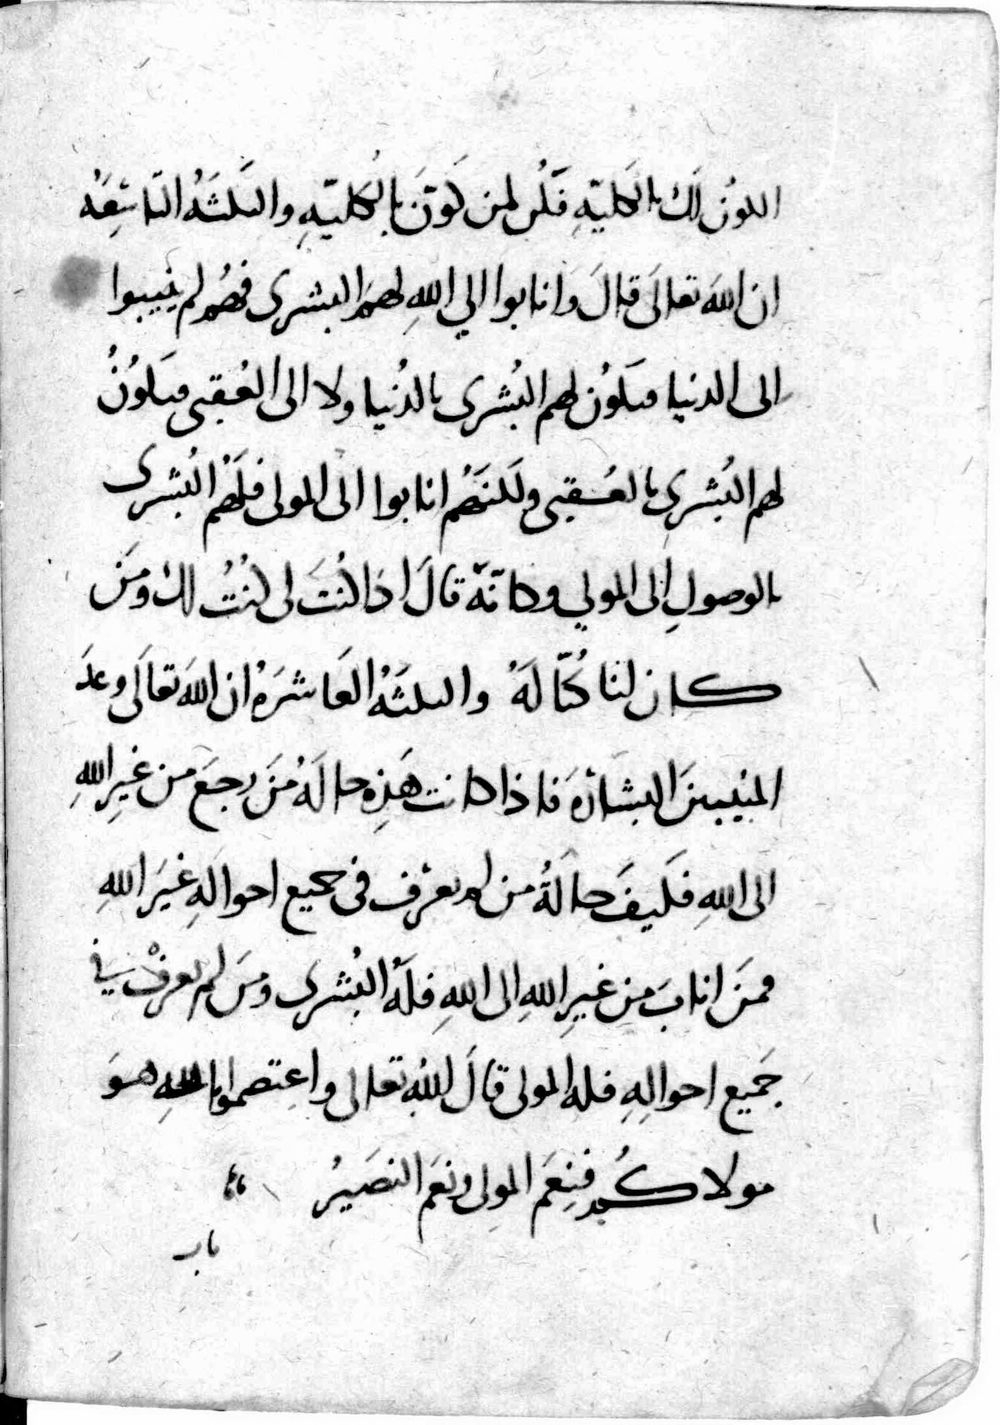 اكون لك بالكلية فكن لمن كوّن بالكليّةِ والنكتهُ التاسِعَهُ
ان اللهَ تعالَى قالَ وَانابوا الي اللهِ لهمُ البشرى فهُم لم ينيبوا
الى الدنيا فيكوُن لهم البُشرى بالدُنيا ولا الى العُقبى فيكوُنُ
لهم البُشرى بالعُقبى ولكنهُم انابوا الى المولى فلَهُم البُشرى
بالوصولِ الى المولي وكانّهُ قالَ اذا كُنتَ لى كنْتُ لك ومَن
كان لنا كُنّا لَهُ والنكتهُ العَاشرَهُ ان اللهَ تعالَى وعدَ
المنيبينَ البشارَهَ فاذا كانت هَذِه حالَهُ مَن رجعَ من غيرِ اللهِ
الى اللهِ فكيفَ حالَةُ من لم يعرف فى جميع احوالهِ غيرَ اللهِ
فمَن انابَ مِن غيرِ اللهِ الى اللهِ فلَهُ البُشرى ومَن لم يعرفْ في
جَميع احوالِهِ فله المولى قالَ اللهُ تعالى واعتصموا بالله هوَ
مولاكُم فنِعمَ المولى ونعَم النصَيرُ
باب